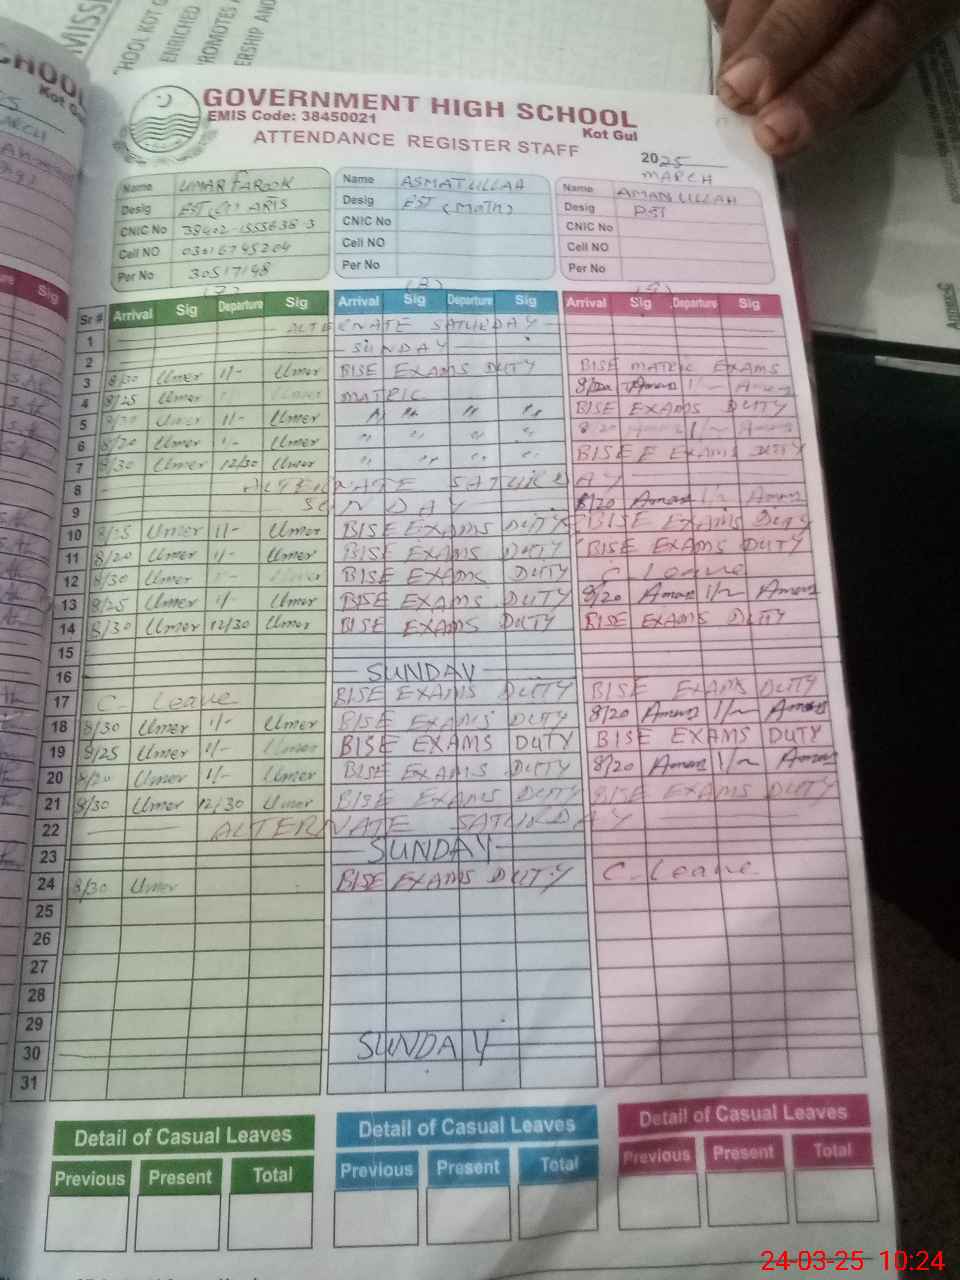 GOVERNMENT HIGH SCHOOL
EMIS Code: 38450021
Kot Gul
ATTENDANCE REGISTER STAFF
2025
MARCH
Name UMAR FAROOK
Desig EST
CNIC No
Cell NO
Per No 30517148
Name ASMATULLAH
Desig EST (MATH)
CNIC No
Cell NO
Per No
Name AMANULLAH
Desig PST
CNIC No
Cell NO
Per No
Sr # Arrival Sig Departure Sig Arrival Sig Departure Sig Arrival Sig Departure Sig
ALTERNATE SATURDAY
1
SUNDAY
2
BISE EXAMS DUTY BISE MATRIC EXAMS
3 8/30 Umer 1/- Umer MATRIC 8/20 Aman 1/- Aman
4 8/25 Umer BISE EXAMS DUTY
5 Umer 1/- Umer
6 8/20 Umer 1/- Umer BISE EXAMS DUTY
7 8/30 Umer 12/30 Umer
8 ALTERNATE SATURDAY
9 SUNDAY 8/20 Aman 1/- Aman
10 8/25 Umer 1/- Umer BISE EXAMS DUTY BISE EXAMS DUTY
11 8/20 Umer 1/- Umer BISE EXAMS DUTY BISE EXAMS DUTY
12 8/30 Umer BISE EXAMS DUTY C. Leave
13 8/25 Umer 1/- Umer BISE EXAMS DUTY 8/20 Aman 1/- Aman
14 8/30 Umer 12/30 Umer BISE EXAMS DUTY BISE EXAMS DUTY
15
16 SUNDAY
17 C. Leave BISE EXAMS DUTY BISE EXAMS DUTY
18 8/30 Umer 1/- Umer BISE EXAMS DUTY 8/20 Aman 1/- Aman
19 8/25 Umer 1/- Umer BISE EXAMS DUTY BISE EXAMS DUTY
20 8/20 Umer 1/- Umer BISE EXAMS DUTY 8/20 Aman 1/- Aman
21 8/30 Umer 12/30 Umer BISE EXAMS DUTY BISE EXAMS DUTY
22 ALTERNATE SATURDAY
23 SUNDAY
24 8/30 Umer BISE EXAMS DUTY C. Leave
25
26
27
28
29
30 SUNDAY
31
Detail of Casual Leaves Detail of Casual Leaves Detail of Casual Leaves
Previous Present Total Previous Present Total Previous Present Total
24-03-25 10:24